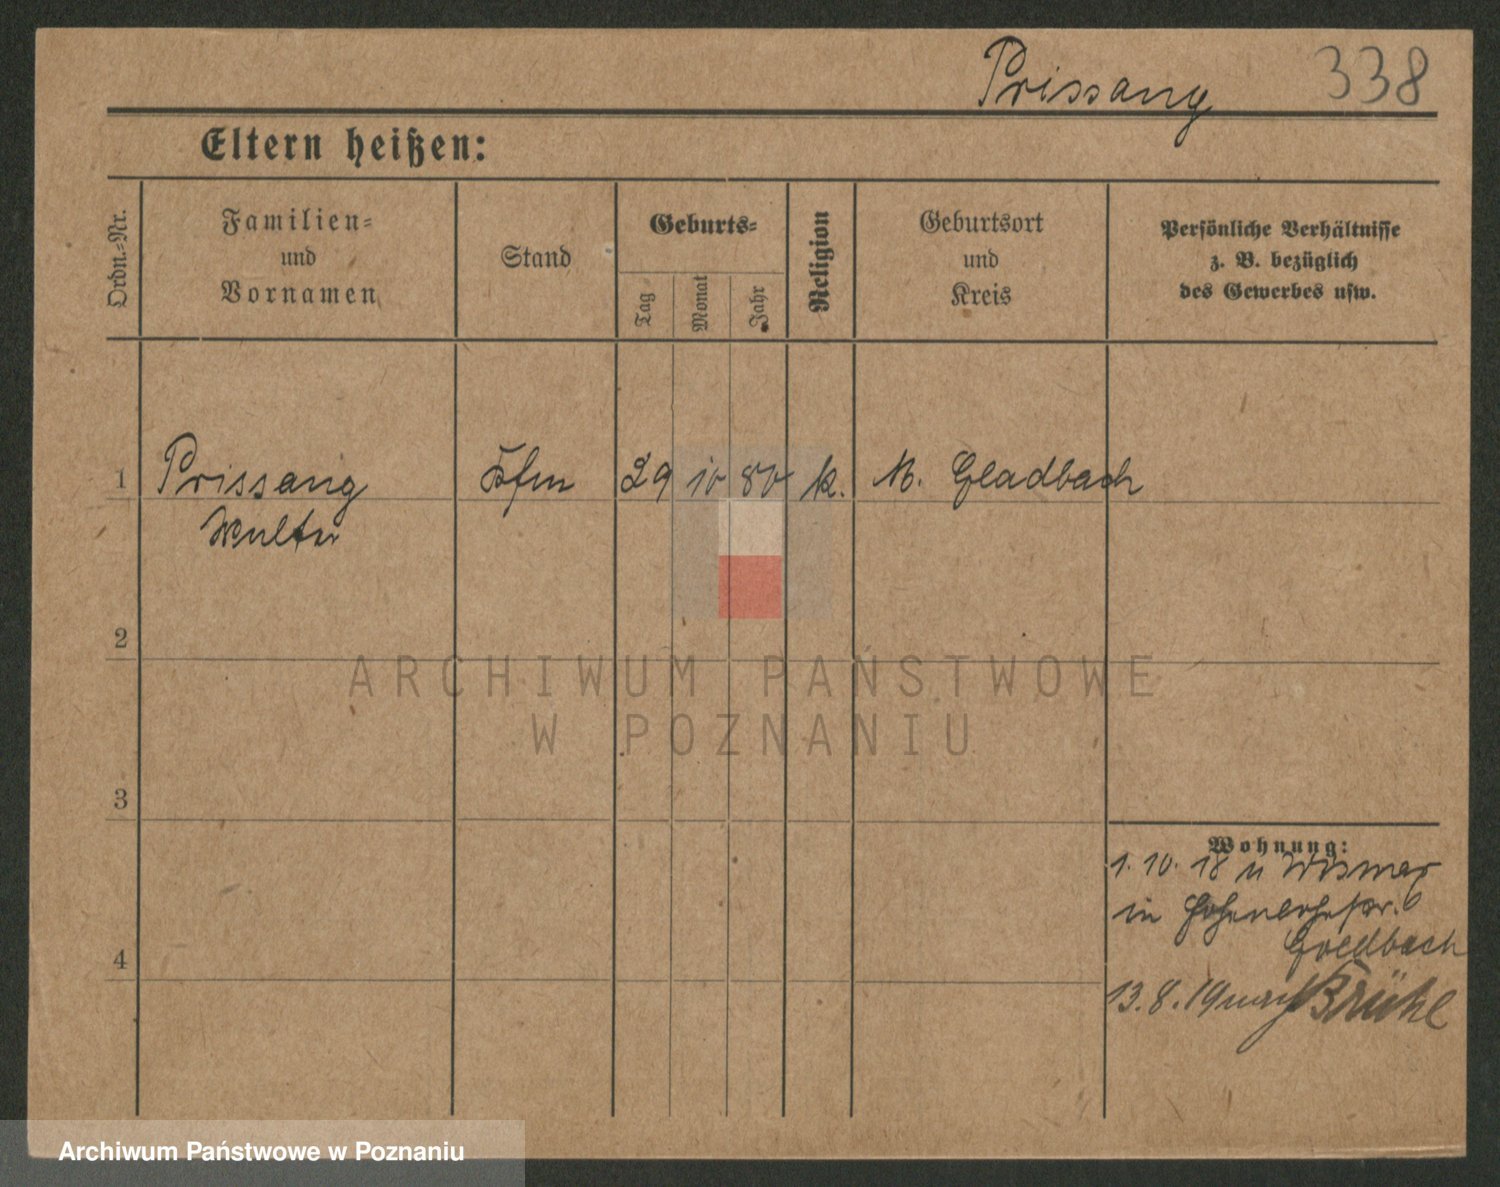 Prissang 338
Eltern heißen:
Ordn.-Nr.
Familien-
und
Vornamen
Stand
Geburts-
Tag
Monat
Jahr
Religion
Geburtsort
und
Kreis
Persönliche Verhältnisse
z. B. bezüglich
des Gewerbes usw.
1 Prissang Kfm 29 10 80 k. M. Gladbach
Walter
2
ARCHIWUM PAŃSTWOWE
W POZNANIU
3
Wohnung:
1. 10. 18 v Wismar
in
4
13. 8. 19 nach Brühl
Archiwum Państwowe w Poznaniu